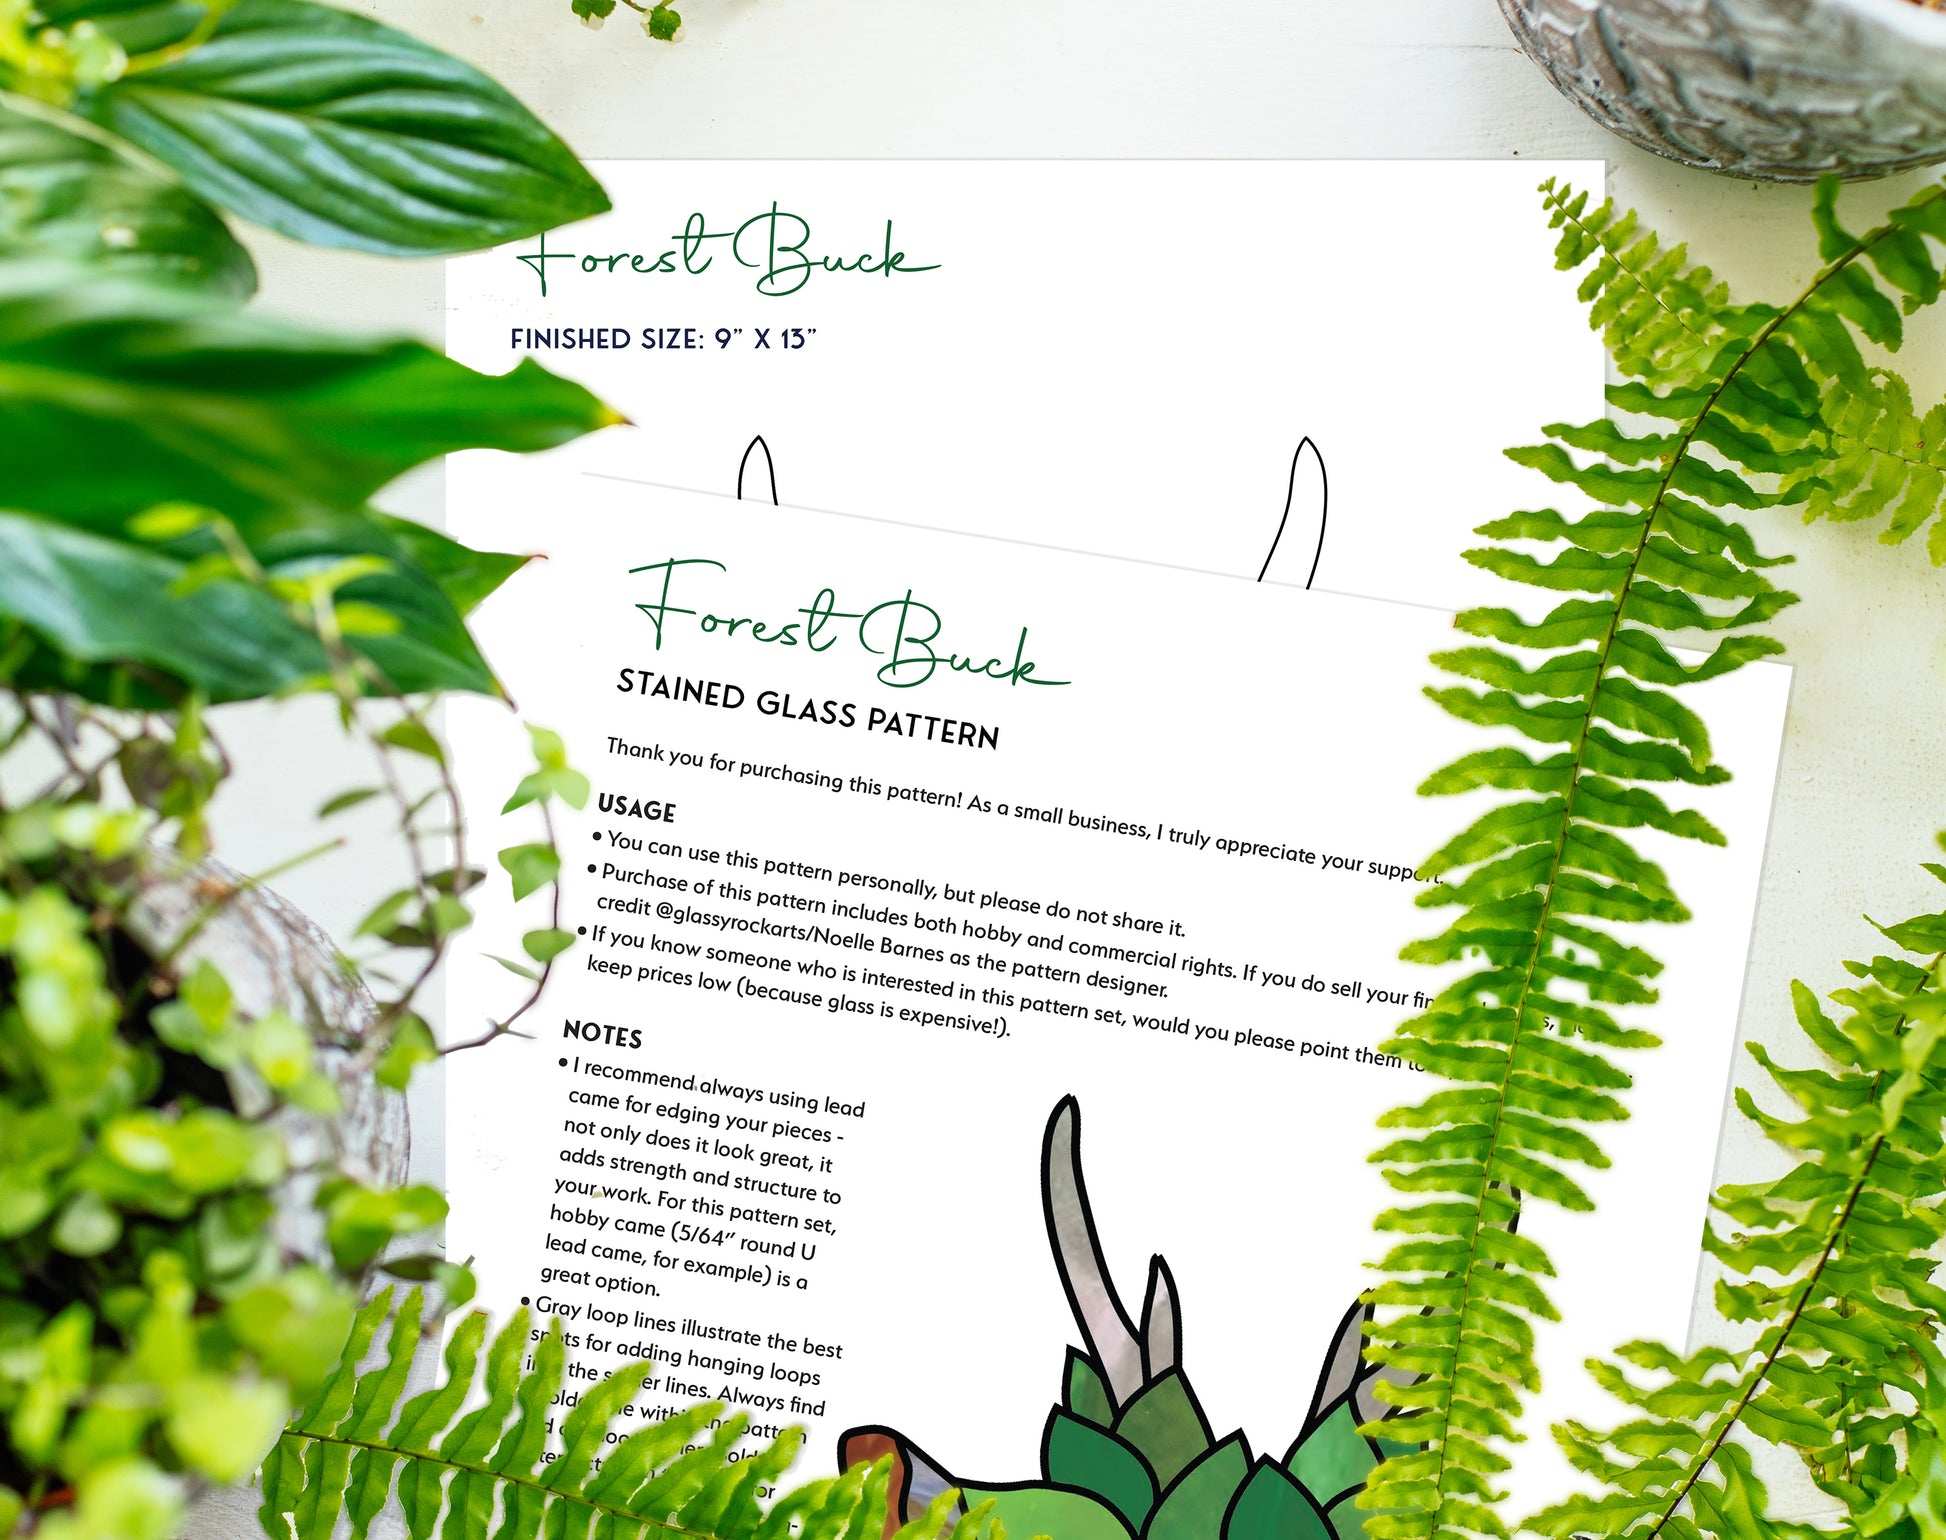 Forest Buck
FINISHED SIZE: 9” X 13”
Forest Buck
STAINED GLASS PATTERN
Thank you for purchasing this pattern! As a small business, I truly appreciate your support.
USAGE
• You can use this pattern personally, but please do not share it.
• Purchase of this pattern includes both hobby and commercial rights. If you do sell your
credit @glassyrockarts/Noelle Barnes as the pattern designer.
• If you know someone who is interested in this pattern set, would you please point them
keep prices low (because glass is expensive!).
NOTES
• I recommend always using lead
came for edging your pieces -
not only does it look great, it
adds strength and structure to
your work. For this pattern set,
hobby came (5/64” round U
lead came, for example) is a
great option.
• Gray loop lines illustrate the best
spots for adding hanging loops
the lines. Always find
pattern